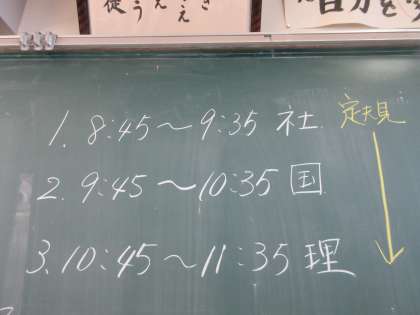 使う えさ
自分を
1. 8:45～9:35 社 定規
2. 9:45～10:35 国
3. 10:45～11:35 理